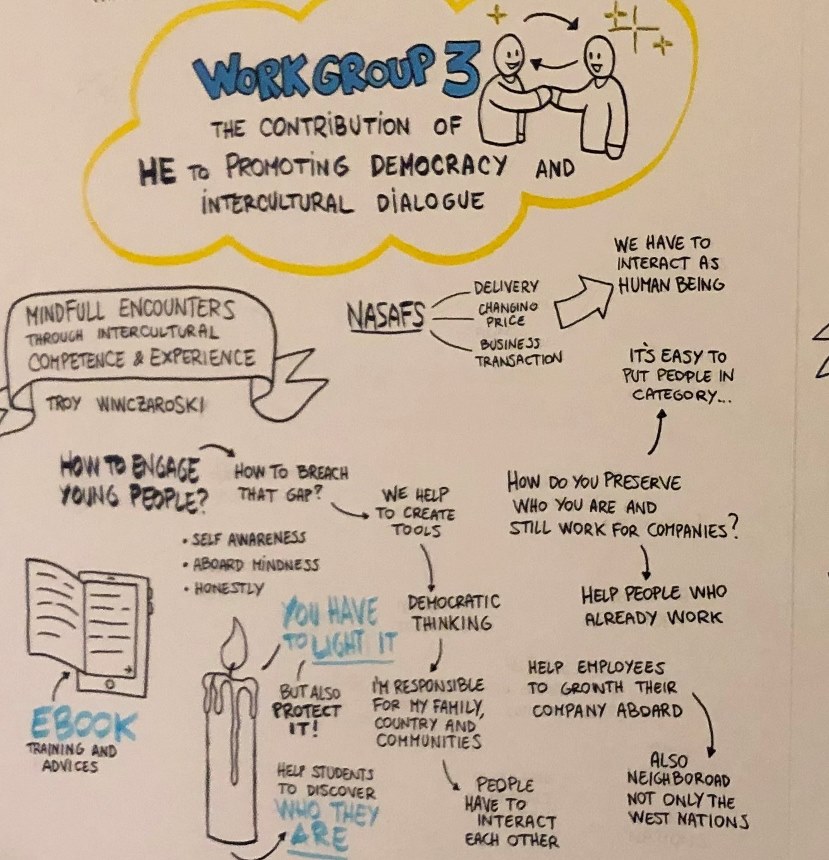 WORKGROUP 3
THE CONTRIBUTION OF
HE TO PROMOTING DEMOCRACY AND
INTERCULTURAL DIALOGUE
MINDFULL ENCOUNTERS
THROUGH INTERCULTURAL
COMPETENCE & EXPERIENCE
TROY WIWCZAROSKI
NASAFS
DELIVERY
CHANGING
PRICE
BUSINESS
TRANSACTION
WE HAVE TO
INTERACT AS
HUMAN BEING
IT'S EASY TO
PUT PEOPLE IN
CATEGORY...
HOW TO ENGAGE
YOUNG PEOPLE?
HOW TO BREACH
THAT GAP?
WE HELP
TO CREATE
TOOLS
• SELF AWARENESS
• ABOARD MINDNESS
• HONESTLY
DEMOCRATIC
THINKING
I'M RESPONSIBLE
FOR MY FAMILY,
COUNTRY AND
COMMUNITIES
PEOPLE
HAVE TO
INTERACT
EACH OTHER
HOW DO YOU PRESERVE
WHO YOU ARE AND
STILL WORK FOR COMPANIES?
HELP PEOPLE WHO
ALREADY WORK
HELP EMPLOYEES
TO GROWTH THEIR
COMPANY ABOARD
ALSO
NEIGHBOROAD
NOT ONLY THE
WEST NATIONS
EBOOK
TRAINING AND
ADVICES
YOU HAVE
TO LIGHT IT
BUT ALSO
PROTECT
IT!
HELP STUDENTS
TO DISCOVER
WHO THEY
ARE